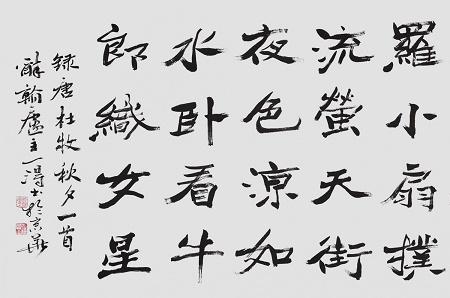 羅小扇撲
流螢天街
夜色涼如
水卧看牛
郎織女星
録唐杜牧秋夕一首
醉翰廬主一得於京華